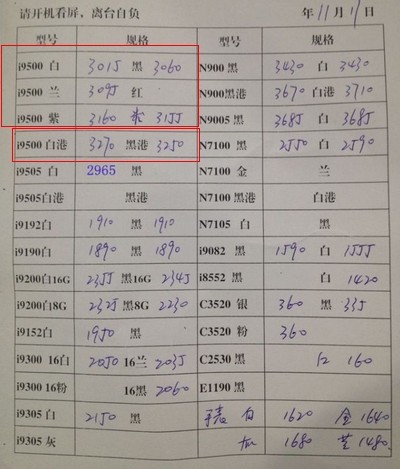 请开机看屏，离台自负 年11月11日
型号 规格 型号 规格
i9500 白 3015 黑 3060 N900 黑 3430 白 3430
i9500 兰 3095 红 N900黑港 3670 白港 3710
i9500 紫 3160 3155 N9005 黑 3685 白 3685
i9500 白港 3270 黑港 3250 N7100 黑 2550 白 2590
i9505 白 2965 黑 N7100 金 兰
i9505白港 黑港 N7100 黑港 白港
i9192白 1910 黑 1910 N7105 白 黑
i9190白 1890 黑 1890 i9082 黑 1590 白 1555
i9200白16G 2355 黑16G 2345 i8552 黑 白 1420
i9200白8G 2325 黑8G 2230 C3520 银 360 黑 335
i9152白 1950 黑 C3520 粉 360
i9300 16白 2050 16兰 2035 C2530 黑 红 160
i9300 16粉 16黑 2060 E1190 黑
i9305 白 2150 黑 白 1620 金 1640
i9305 灰 1680 1480